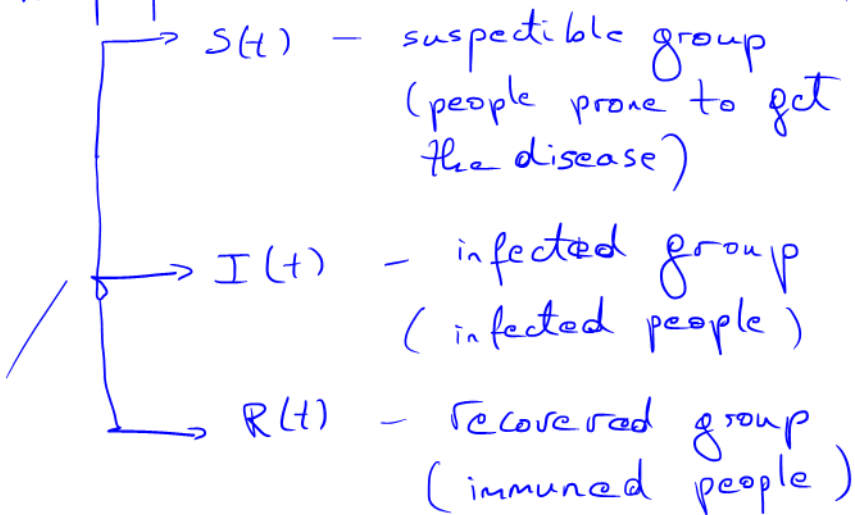 S(t) – suspectible group
(people prone to get
the disease)
I(t) – infected group
(infected people)
R(t) – recovered group
(immuned people)